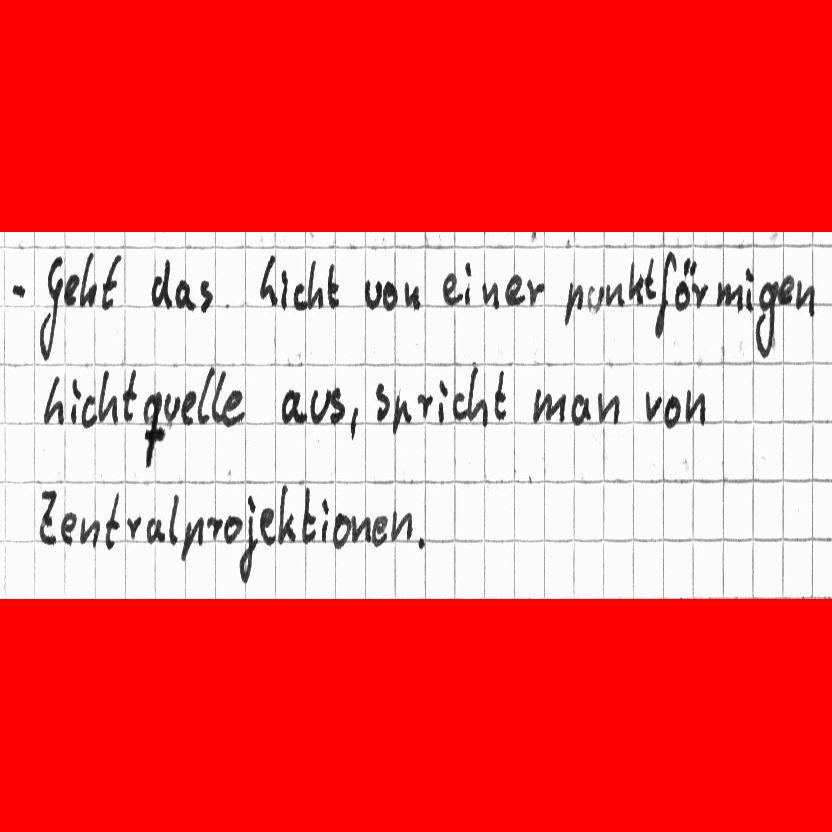 - Geht das Licht von einer punktförmigen
Lichtquelle aus, spricht man von
Zentralprojektionen.